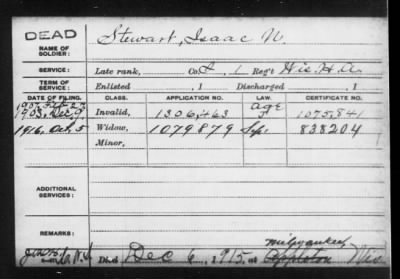 DEAD
NAME OF SOLDIER: Stewart, Isaac N.
SERVICE: Late rank, Co. I, 1 Reg't Wis. H.A.
TERM OF SERVICE: Enlisted , 1 Discharged , 1
DATE OF FILING. CLASS. APPLICATION NO. LAW. CERTIFICATE NO.
1907 Feb 27 age
1903, Dec. 9 Invalid, 1306,463 1075,841
1916, Oct. 5 Widow, 1079879 838204
Minor,
ADDITIONAL SERVICES:
REMARKS:
Milwaukee
Died Dec 6, 1915, at Appleton Wis